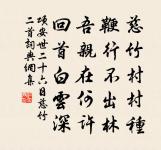 慈竹村村種
鞭行不出林
吾親在何許
回首白雲深
項安世二十六日慈竹
二首詞典網集